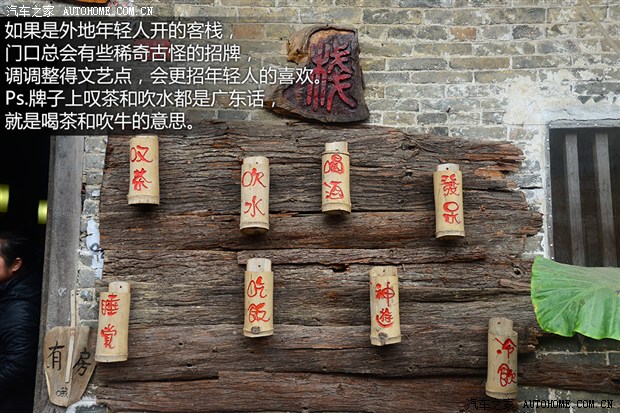 汽车之家 WWW.AUTOHOME.COM.CN
如果是外地年轻人开的客栈，
门口总会有些稀奇古怪的招牌，
调调整得文艺点，会更招年轻人的喜欢。
Ps.牌子上叹茶和吹水都是广东话，
就是喝茶和吹牛的意思。
栈
叹茶
吹水
喝酒
發呆
睡觉
吃飯
神遊
冷飲
有房
汽车之家 WWW.AUTOHOME.COM.CN